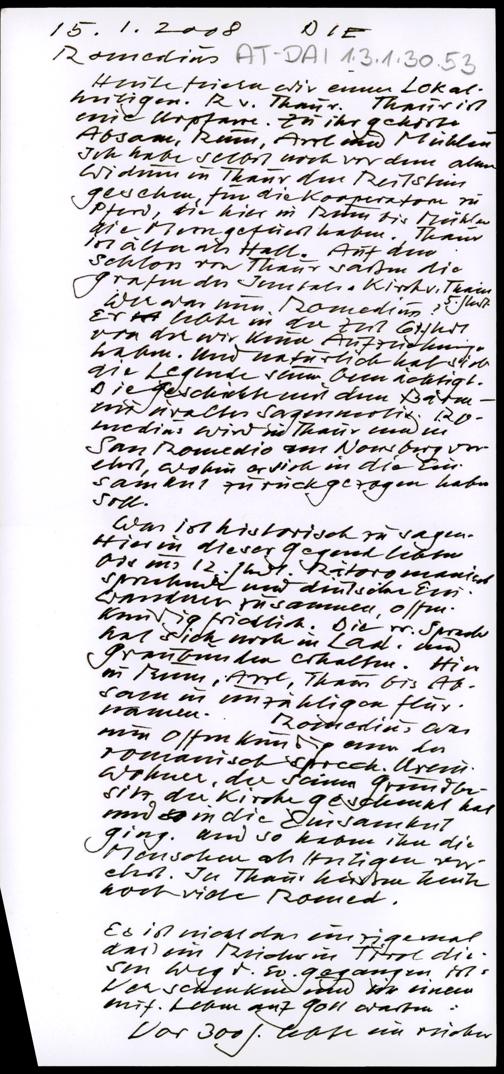 15. 1. 2008 DIE
Romedius AT-DAI 1.3.1.30.53
Heute feiern wir einen Lokal-
heiligen. R v. Thaur. Thaur ist
eine Urpfarre. Zu ihr gehörte
Absam, Rum, Arzl und Mühlau
Ich habe selbst noch vor dem alten
Widum in Thaur den Reitstein
gesehen, für die Kooperatoren zu
Pferd, die hier in Rum bis Mühlau
die Messe gefeiert haben. Thaur
ist älter als Hall. Auf dem
Schloss von Thaur saßen die
Grafen des Inntals. Kirche v. Thaur
Wer war nun Romedius? 5. Jhdt.
Er lebte in der Zeit 6. Jhdt
von der wir keine Aufzeichnung
haben. Und natürlich hat sich
die Legende seiner bemächtigt.
Die Geschichte mit dem Bären
ein uraltes Sagenmotiv. Ro-
medius wird in Thaur und in
San Romedio am Nonsberg ver-
ehrt, wohin er sich in die Ein-
samkeit zurückgezogen haben
soll.
Was ist historisch zu sagen.
Hier in dieser Gegend lebten
bis ins 12. Jhdt. Rätoromanisch
sprechende und deutsche Ein-
wanderer zusammen, offen-
kundig friedlich. Die rr. Sprache
hat sich noch in Lad. und
Graubünden erhalten. Hier
in Rum, Arzl, Thaur bis Ab-
sam in unzähligen Flur-
namen. Romedius war
nun offenkundig einer der
romanisch sprech. Urein-
wohner, der seinen Grundbe-
sitz der Kirche geschenkt hat
und so in die Einsamkeit
ging. Und so haben ihn die
Menschen als Heiligen ver-
ehrt. In Thaur heißen heute
noch viele Romed.
Es ist nicht das einzige mal
daß ein Reicher in Tirol die-
sen Weg d. Ev. gegangen ist:
Verschenken und in einem
einf. Leben auf Gott warten:
Vor 300 J. lebte ein reicher